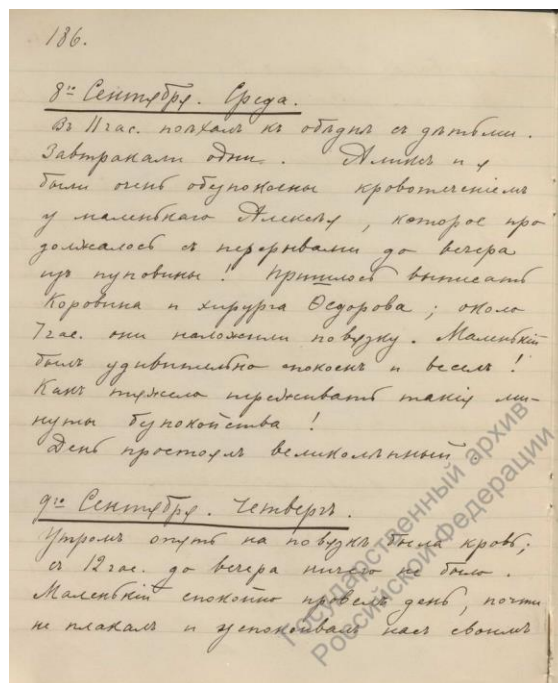 186.
8го Сентября. Среда.
Въ 11 час. поѣхалъ къ обѣднѣ съ дѣтьми.
Завтракали одни. Аликсъ и я
были очень обезпокоены кровотеченіемъ
у маленькаго Алексѣя, которое про-
должалось съ перерывами до вечера
изъ пуповины! Пришлось выписать
Коровина и хирурга Ѳедорова; около
7 час. они наложили повязку. Маленькій
былъ удивительно спокоенъ и веселъ!
Какъ тяжело переживать такія ми-
нуты безпокойства!
День простоялъ великолѣпный.
9го Сентября. Четвергъ.
Утромъ опять на повязкѣ была кровь;
съ 12 час. до вечера ничего не было.
Маленькій спокойно провелъ день, почти
не плакалъ и успокоивалъ насъ своимъ
Государственный архив
Российской Федерации